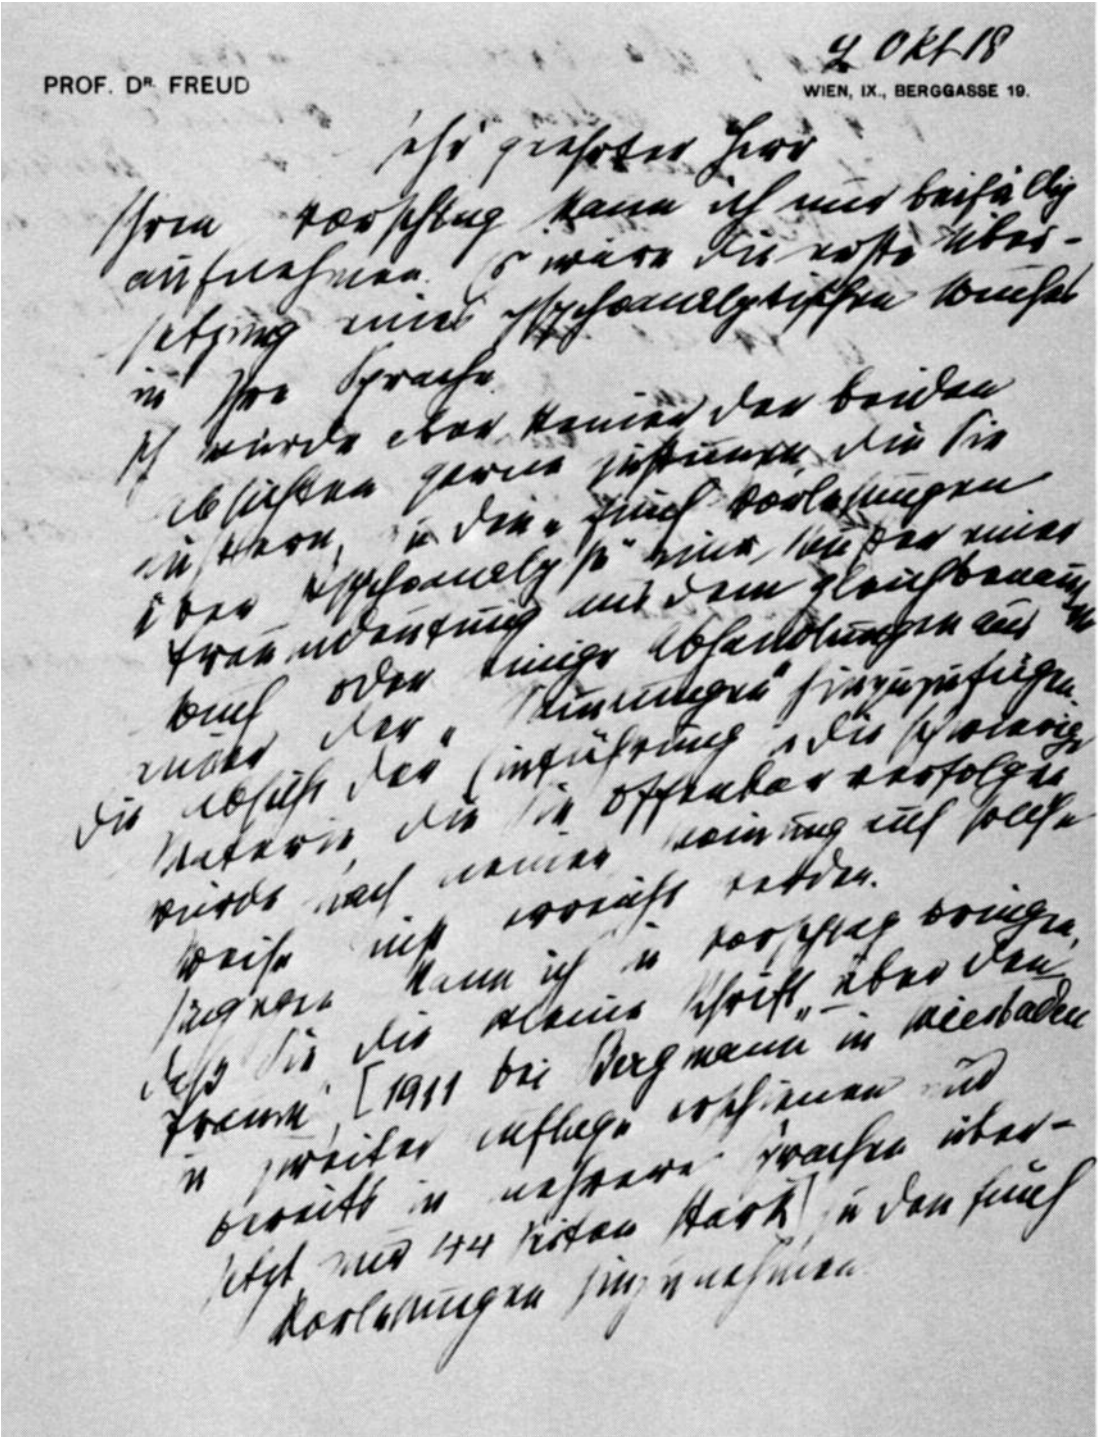 Okt 18
PROF. DR. FREUD
WIEN, IX., BERGGASSE 19.
Sehr geehrter Herr
Ihren Vorschlag kann ich nur beifällig
aufnehmen. Es wäre die erste Über-
setzung eines psychoanalytischen Buches
in Ihre Sprache.
Ich würde aber keiner der beiden
Absichten gerne zustimmen, die Sie
äußern, zu den „Fünf Vorlesungen
über Psychoanalyse" eine Muster einer
Traumdeutung aus dem gleichbenannten
Buch oder einige Abhandlungen aus
der „ hinzuzufügen.
Die Absicht der Einführung in die schwierige
Materie, die Sie offenbar verfolgen
würde nach meiner Meinung auf solche
Weise nicht erreicht werden.
Hingegen kann ich in Vorschlag bringen,
daß Sie die kleine Schrift „über den
Traum", [1911 bei Bergmann in Wiesbaden
in zweiter Auflage erschienen und
bereits in mehrere Sprachen über-
setzt, nur 44 Seiten stark] zu den fünf
Vorlesungen hinzunehmen.